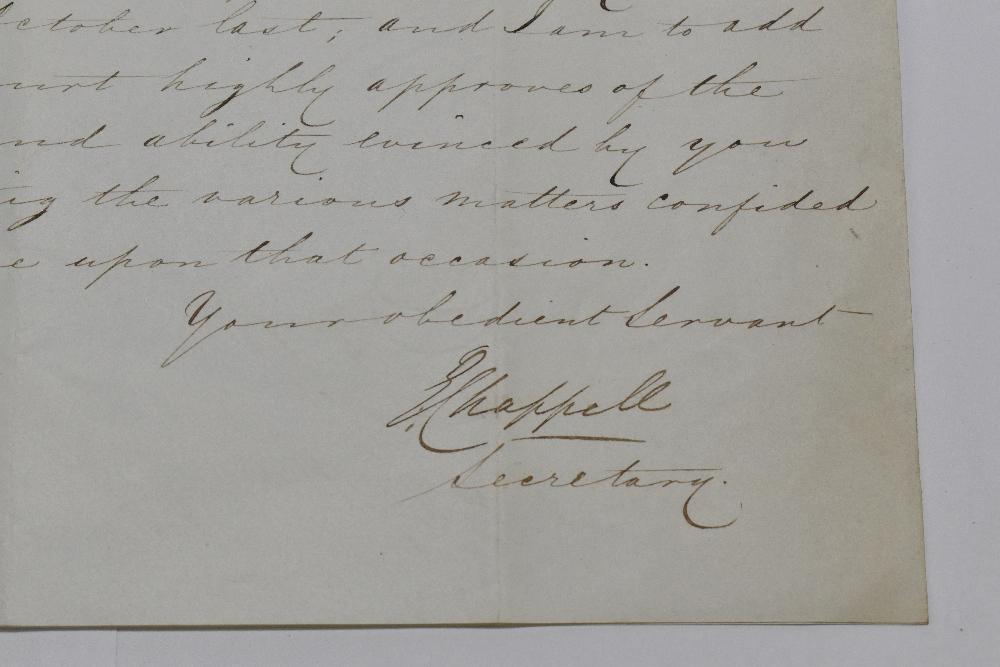 ctober last; and I am to add
urt highly approves of the
nd ability evinced by you
ig the various matters confided
e upon that occasion.
Your obedient Servant
Chappell
Secretary.